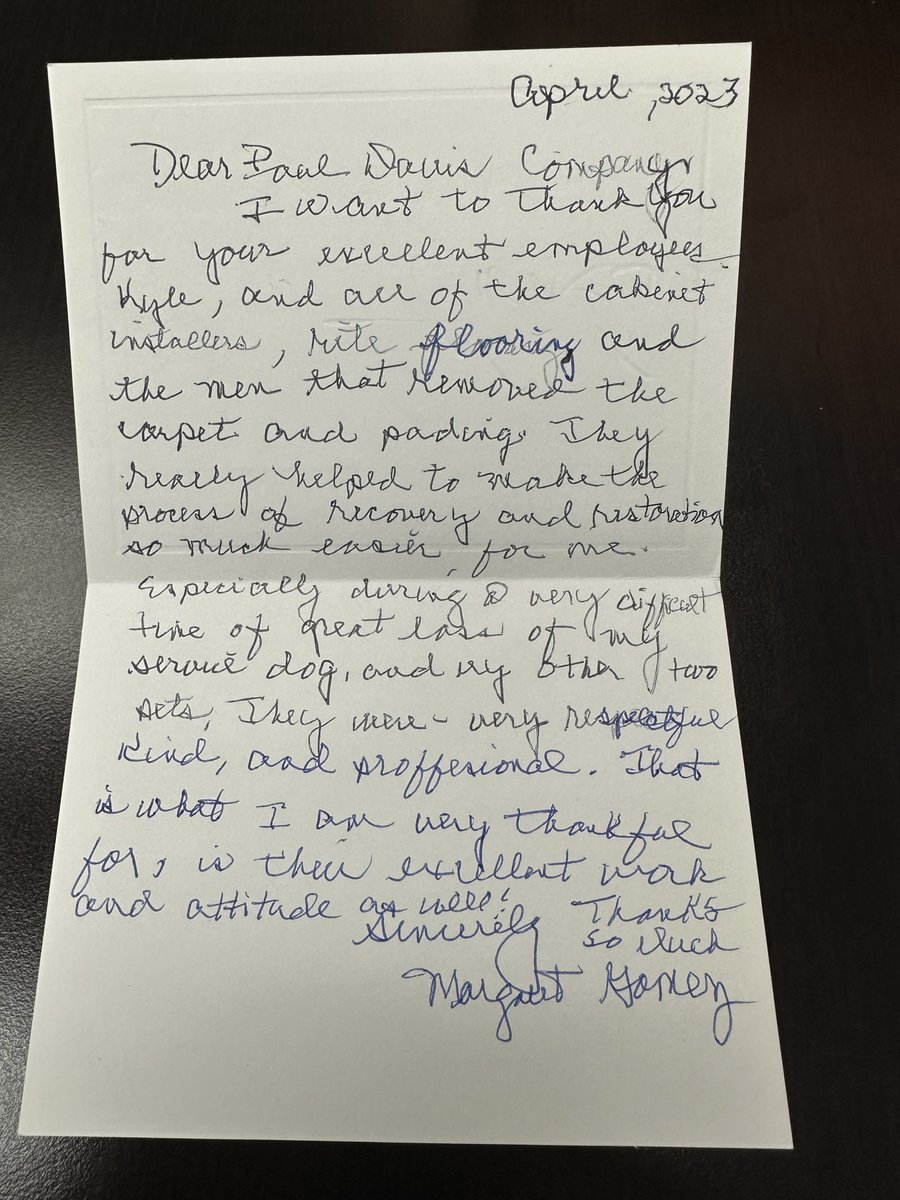 April, 2023
Dear Paul Davis Company
I want to thank you
for your excellent employees.
Kyle, and all of the cabinet
installers, rite flooring and
the men that removed the
carpet and pading. They
really helped to make the
process of recovery and restoration
so much easier for me.
Especially during a very difficult
time of great loss of my
service dog, and my other two
pets, They were very respectful
kind, and proffesional. That
is what I am very thankful
for, is their excellent work
and attitude as well!
Sincerely Thanks
so Much
Margaret Gomez